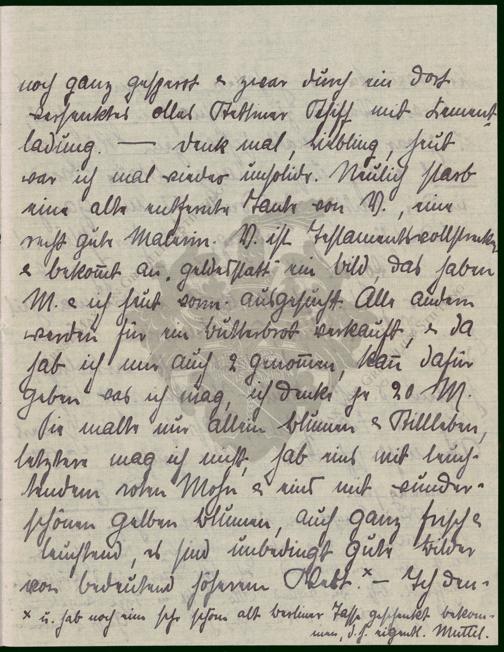 noch ganz gesperrt & zwar durch ein dort
versenktes olles Stettiner Schiff mit Cement-
ladung. — Denk mal, Liebling, heut
war ich mal wieder unsolide. Neulich starb
eine alte entfernte Tante von V., eine
recht gute Malerin. V. ist Testamentsvollstrecker
& bekommt an „geldesstatt" ein Bild das haben
M. & ich heut vorm. ausgesucht. Alle andern
werden für ein Butterbrot verkauft, & da
hab ich mir auch 2 genommen, kann dafür
geben was ich mag, ich denke je 20 M.
Sie malte nur allein Blumen & Stilleben,
letztere mag ich nicht, hab eins mit leuch-
tendem roten Mohn & eins mit wunder-
schönen gelben Blumen, auch ganz frisch &
leuchtend, es sind unbedingt gute Bilder
von bedeutend höherem Wert.x — Ich den-
x u. hab noch eine sehr schöne alt Berliner Tasse geschenkt bekom-
men, d.h. eigentl. Muttel.